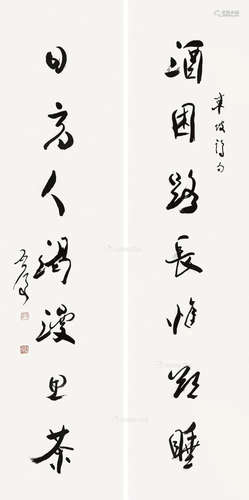 東坡詩句
酒困路長惟欲睡
日高人渴漫思茶